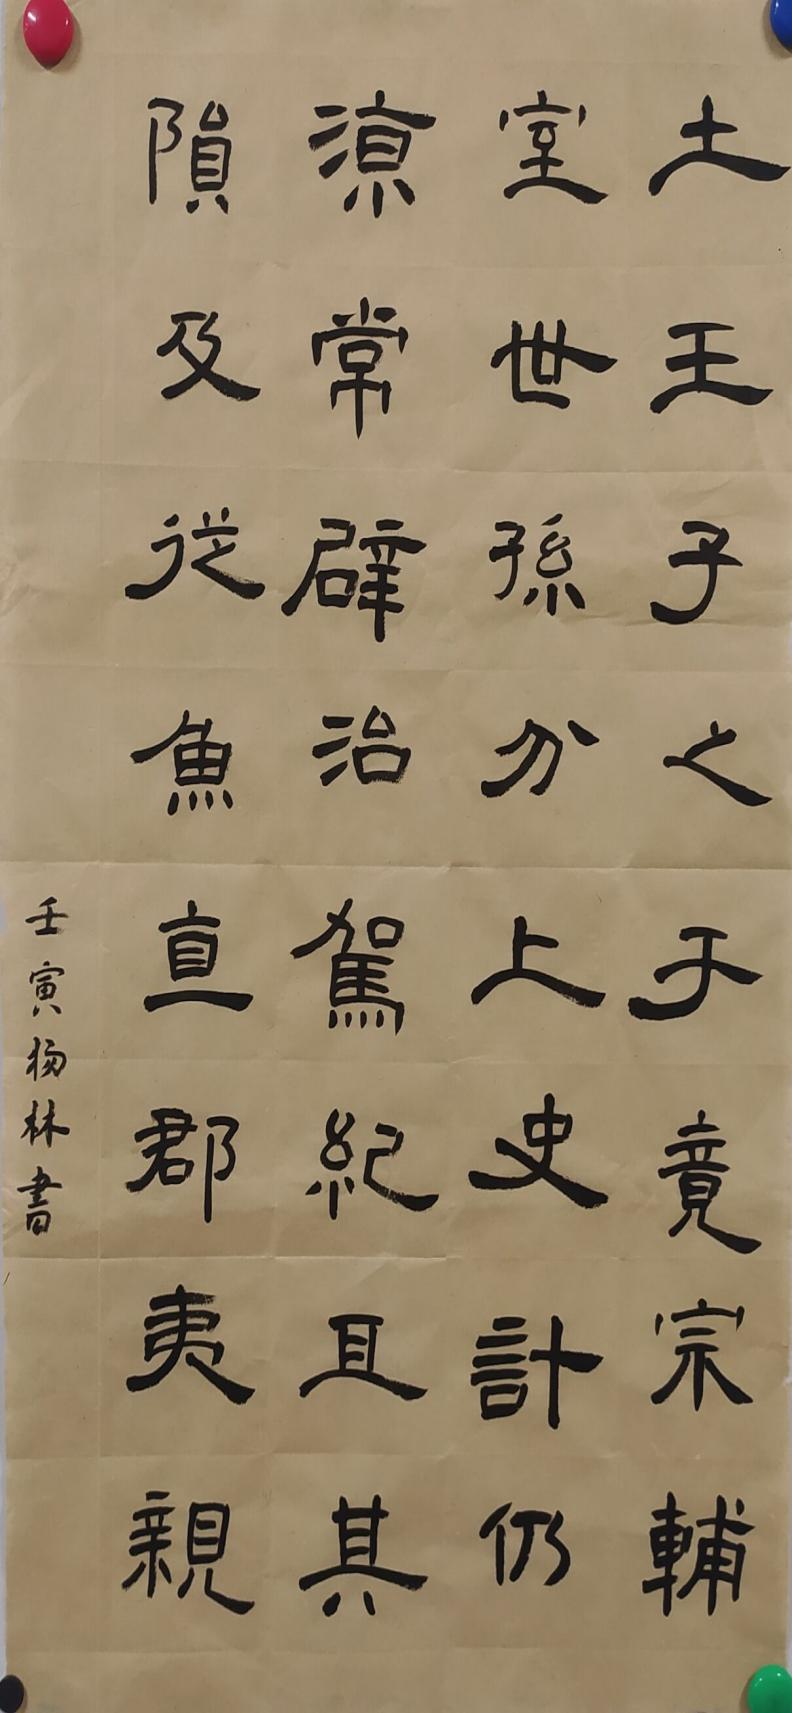 土王子之于竟宗輔
室世孫分上史計仍
涼常辟治駕紀且其
隕及從魚直郡夷親
壬寅楊林書